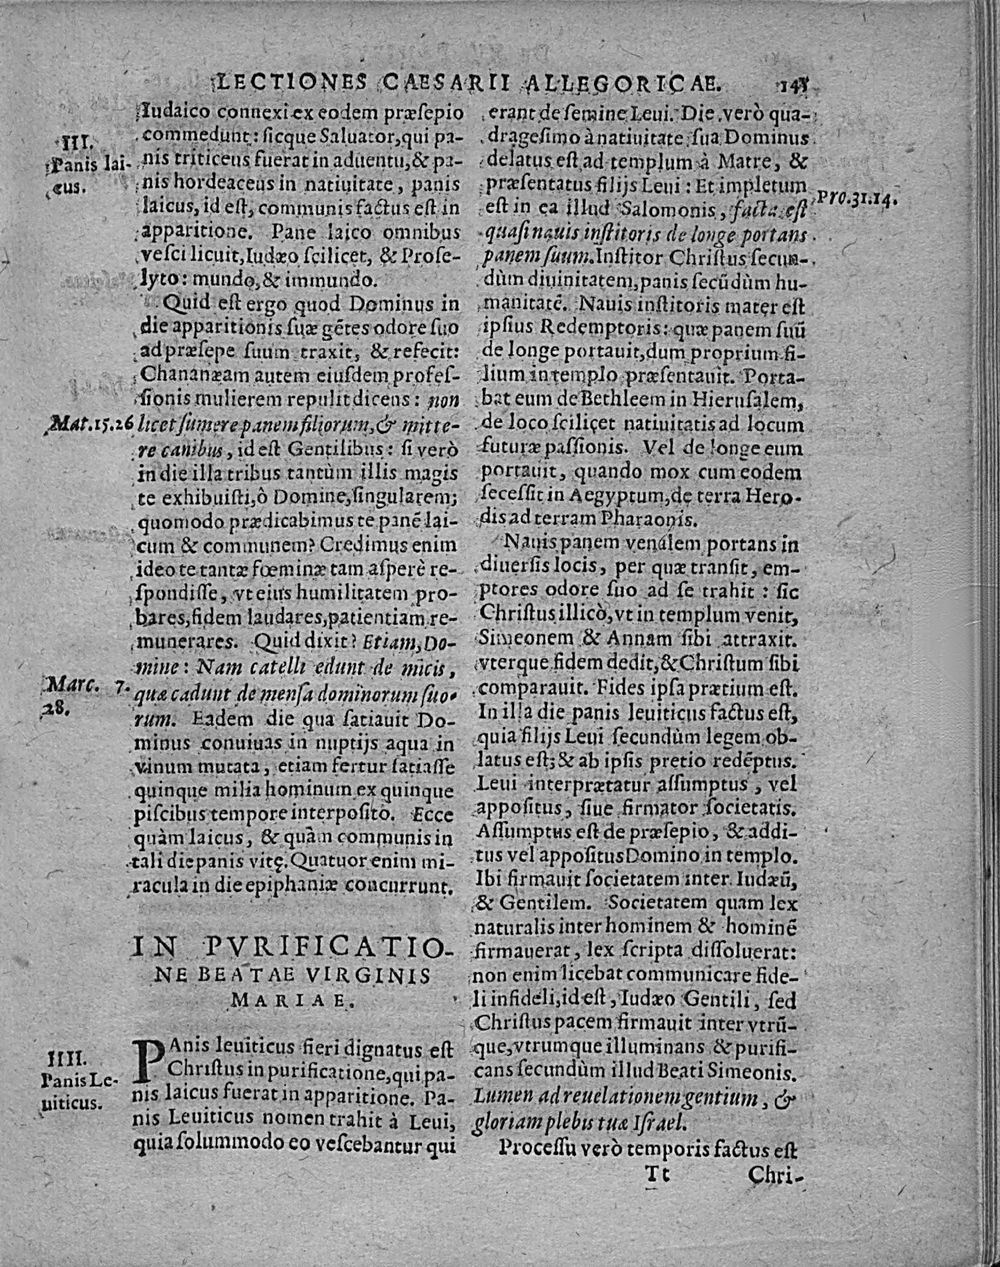 LECTIONES CAESARII ALLEGORICAE. 145
Iudaico connexi ex eodem præsepio
commedunt: sicque Saluator, qui pa-
nis triticeus fuerat in aduentu, & pa-
nis hordeaceus in natiuitate, panis
laicus, id est, communis factus est in
apparitione. Pane laico omnibus
vesci licuit, Iudæo scilicet, & Prose-
lyto: mundo, & immundo.
Quid est ergo quod Dominus in
die apparitionis suæ gẽtes odore suo
ad præsepe suum traxit, & refecit:
Chananæam autem eiusdem profes-
sionis mulierem repulit dicens: non
licet sumere panem filiorum, & mitte-
re canibus, id est Gentilibus: si verò
in die illa tribus tantùm illis magis
te exhibuisti, ô Domine, singularem;
quomodo prædicabimus te panẽ lai-
cum & communem? Credimus enim
ideo te tantæ fœminæ tam asperè re-
spondisse, vt eius humilitatem pro-
bares, fidem laudares, patientiam re-
munerares. Quid dixit? Etiam, Do-
mine: Nam catelli edunt de micis,
quæ cadunt de mensa dominorum suo-
rum. Eadem die qua satiauit Do-
minus conuiuas in nuptijs aqua in
vinum mutata, etiam fertur satiasse
quinque milia hominum ex quinque
piscibus tempore interposito. Ecce
quàm laicus, & quàm communis in
tali die panis vitę. Quatuor enim mi-
racula in die epiphaniæ concurrunt.
IN PVRIFICATIO-
NE BEATAE VIRGINIS
MARIAE.
PAnis leuiticus fieri dignatus est
Christus in purificatione, qui pa-
nis laicus fuerat in apparitione. Pa-
nis Leuiticus nomen trahit à Leui,
quia solummodo eo vescebantur qui
III.
Panis lai-
cus.
Mat. 15. 26
Marc. 7.
28.
IIII.
Panis Le-
uiticus.
erant de semine Leui. Die verò qua-
dragesimo à natiuitate sua Dominus
delatus est ad templum à Matre, &
præsentatus filijs Leui: Et impletum
est in ea illud Salomonis, facta est
quasi nauis institoris de longe portans
panem suum. Institor Christus secun-
dùm diuinitatem, panis secũdùm hu-
manitatẽ. Nauis institoris mater est
ipsius Redemptoris: quæ panem suũ
de longe portauit, dum proprium fi-
lium in templo præsentauit. Porta-
bat eum de Bethleem in Hierusalem,
de loco scilicet natiuitatis ad locum
futuræ passionis. Vel de longe eum
portauit, quando mox cum eodem
secessit in Aegyptum, de terra Hero-
dis ad terram Pharaonis.
Nauis panem venálem portans in
diuersis locis, per quæ transit, em-
ptores odore suo ad se trahit: sic
Christus illicò, vt in templum venit,
Simeonem & Annam sibi attraxit.
vterque fidem dedit, & Christum sibi
comparauit. Fides ipsa prætium est.
In illa die panis leuiticus factus est,
quia filijs Leui secundùm legem ob-
latus est; & ab ipsis pretio redẽptus.
Leui interprætatur assumptus, vel
appositus, siue firmator societatis.
Assumptus est de præsepio, & addi-
tus vel appositus Domino in templo.
Ibi firmauit societatem inter Iudæũ,
& Gentilem. Societatem quam lex
naturalis inter hominem & hominẽ
firmauerat, lex scripta dissoluerat:
non enim licebat communicare fide-
li infideli, id est, Iudæo Gentili, sed
Christus pacem firmauit inter vtrũ-
que, vtrumque illuminans & purifi-
cans secundùm illud Beati Simeonis.
Lumen ad reuelationem gentium, &
gloriam plebis tuæ Israel.
Processu verò temporis factus est
Pro. 31. 14.
Tt Chri-